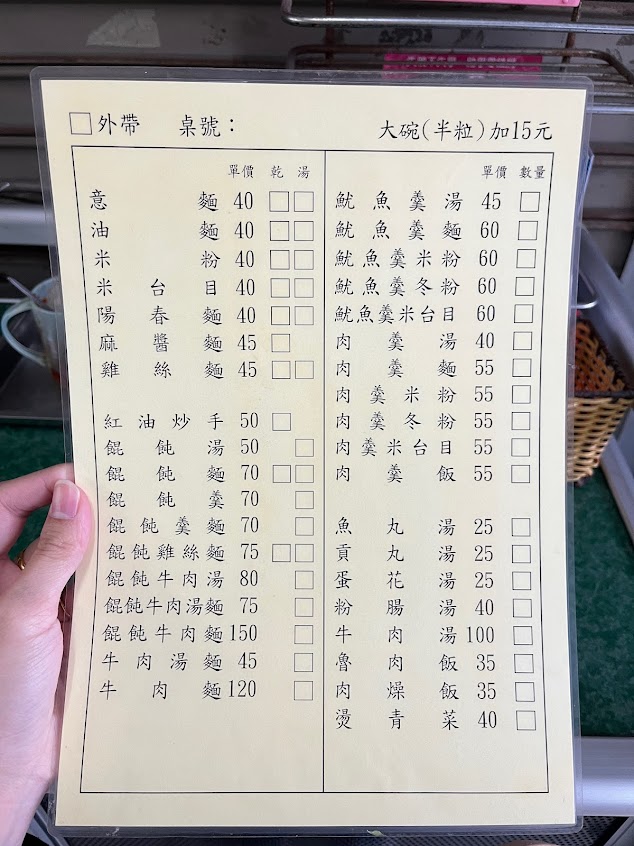 □外帶 桌號： 大碗(半粒)加15元
單價 乾 湯
意麵 40 □□
油麵 40 □□
米粉 40 □□
米台目 40 □□
陽春麵 40 □□
麻醬麵 45 □
雞絲麵 45 □□
紅油炒手 50 □
餛飩湯 50 □
餛飩麵 70 □□
餛飩羹 70 □
餛飩羹麵 70 □
餛飩雞絲麵 75 □□
餛飩牛肉湯 80 □
餛飩牛肉湯麵 75 □
餛飩牛肉麵 150 □
牛肉湯麵 45 □
牛肉麵 120 □
單價 數量
魷魚羹湯 45 □
魷魚羹麵 60 □
魷魚羹米粉 60 □
魷魚羹冬粉 60 □
魷魚羹米台目 60 □
肉羹湯 40 □
肉羹麵 55 □
肉羹米粉 55 □
肉羹冬粉 55 □
肉羹米台目 55 □
肉羹飯 55 □
魚丸湯 25 □
貢丸湯 25 □
蛋花湯 25 □
粉腸湯 40 □
牛肉湯 100 □
魯肉飯 35 □
肉燥飯 35 □
燙青菜 40 □